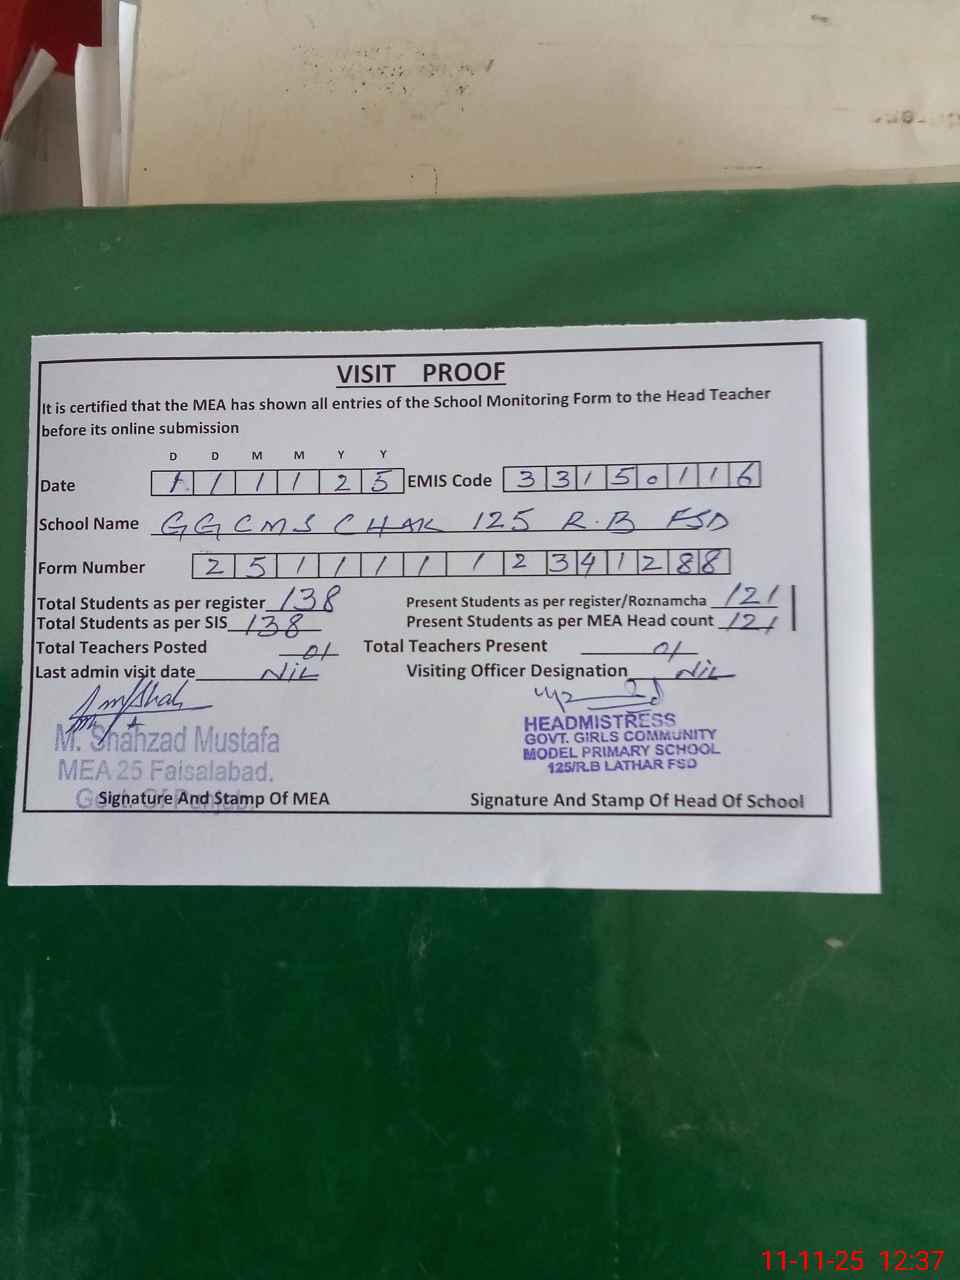 VISIT PROOF
It is certified that the MEA has shown all entries of the School Monitoring Form to the Head Teacher
before its online submission
D D M M Y Y
Date 1 1 1 1 2 5 EMIS Code 3 3 1 5 0 1 1 6
School Name GGCMS CHAK 125 R.B FSD
Form Number 2 5 1 1 1 1 1 2 3 4 1 2 8 8
Total Students as per register 138 Present Students as per register/Roznamcha 121
Total Students as per SIS 138 Present Students as per MEA Head count 121
Total Teachers Posted 01 Total Teachers Present 01
Last admin visit date Nil Visiting Officer Designation Nil
M. Shahzad Mustafa
MEA 25 Faisalabad.
Govt. Of Punjab.
Signature And Stamp Of MEA
HEADMISTRESS
GOVT. GIRLS COMMUNITY
MODEL PRIMARY SCHOOL
125/R.B LATHAR FSD
Signature And Stamp Of Head Of School
11-11-25 12:37